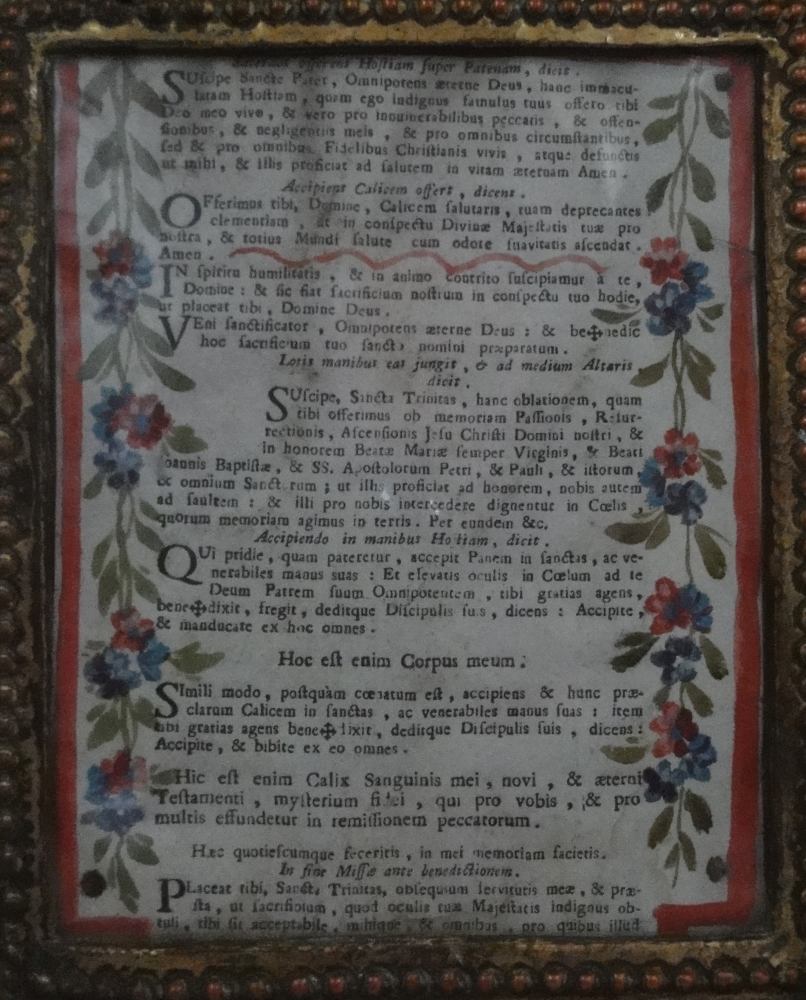 Sacerdos offerens Hoſtiam ſuper Patenam, dicit.
SUſcipe Sancte Pater, Omnipotens æterne Deus, hanc immacu-
latam Hoſtiam, quam ego indignus famulus tuus offero tibi
Deo meo vivo, & vero pro innumerabilibus peccatis, & offen-
ſionibus, & negligentiis meis, & pro omnibus circumſtantibus,
ſed & pro omnibus Fidelibus Chriſtianis vivis, atque defunctis
ut mihi, & illis proficiat ad ſalutem in vitam æternam Amen.
Accipiens Calicem offert, dicens.
OFferimus tibi, Domine, Calicem ſalutaris, tuam deprecantes
clementiam, ut in conſpectu Divinæ Majeſtatis tuæ pro
noſtra, & totius Mundi ſalute cum odore ſuavitatis aſcendat.
Amen.
IN ſpiritu humilitatis, & in animo contrito ſuſcipiamur a te,
Domine: & ſic fiat ſacrificium noſtrum in conſpectu tuo hodie,
ut placeat tibi, Domine Deus.
VEni ſanctificator, Omnipotens æterne Deus: & be✠nedic
hoc ſacrificium tuo ſancto nomini præparatum.
Lotis manibus eas jungit, & ad medium Altaris
dicit.
SUſcipe, Sancta Trinitas, hanc oblationem, quam
tibi offerimus ob memoriam Paſſionis, Reſur-
rectionis, Aſcenſionis Jeſu Chriſti Domini noſtri, &
in honorem Beatæ Mariæ ſemper Virginis, & Beati
oannis Baptiſtæ, & SS. Apoſtolorum Petri, & Pauli, & iſtorum,
& omnium Sanctorum; ut illis proficiat ad honorem, nobis autem
ad ſaultem: & illi pro nobis intercedere dignentur in Cœlis,
quorum memoriam agimus in terris. Per eundem &c.
Accipiendo in manibus Hoſtiam, dicit.
QUi pridie, quam pateretur, accepit Panem in ſanctas, ac ve-
nerabiles manus suas: Et elevatis oculis in Cœlum ad te
Deum Patrem ſuum Omnipotentem, tibi gratias agens,
bene✠dixit, fregit, deditque Diſcipulis ſuis, dicens: Accipite,
& manducate ex hoc omnes.
Hoc eſt enim Corpus meum.
SImili modo, poſtquàm cœnatum eſt, accipiens & hunc præ-
clarum Calicem in ſanctas, ac venerabiles manus ſuas: item
tibi gratias agens bene✠dixit, deditque Diſcipulis ſuis, dicens:
Accipite, & bibite ex eo omnes.
Hic eſt enim Calix Sanguinis mei, novi, & æterni
Teſtamenti, myſterium fidei, qui pro vobis, & pro
multis effundetur in remiſſionem peccatorum.
Hæc quotieſcumque feceritis, in mei memoriam facietis.
In fine Miſſæ ante benedictionem.
PLaceat tibi, Sancta Trinitas, obſequium ſervitutis meæ, & præ-
ſta, ut ſacrificium, quod oculis tuæ Majeſtatis indignus ob-
tuli, tibi ſit acceptabile, mihique, & omnibus, pro quibus illud